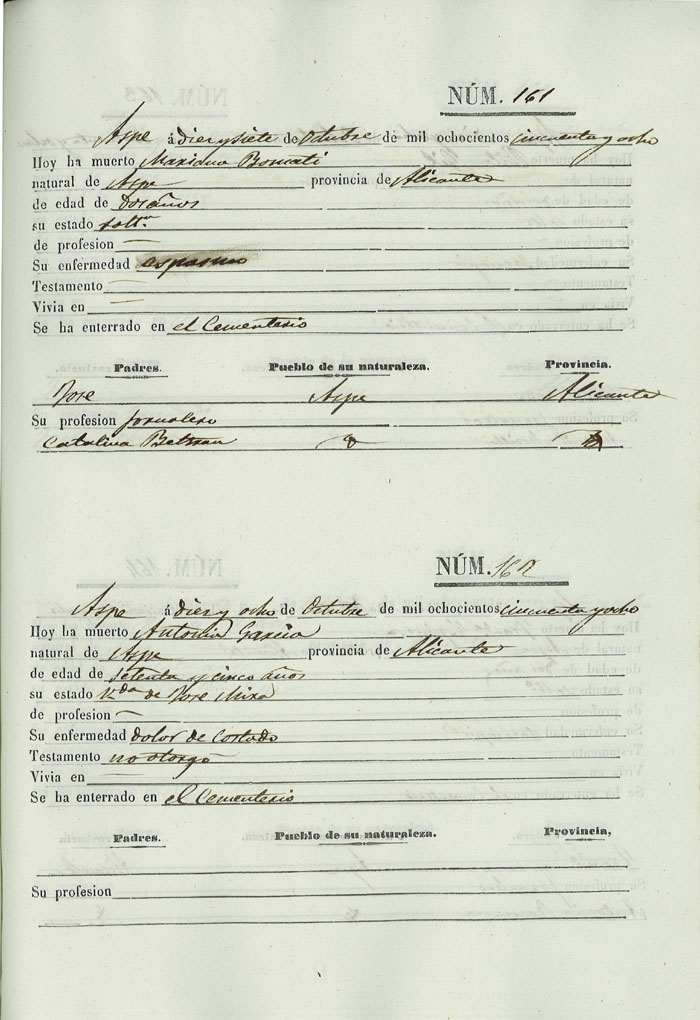 NÚM. 161
Aspe á diez y siete de Octubre de mil ochocientos cincuenta y ocho
Hoy ha muerto
natural de Aspe provincia de Alicante
de edad de Dos años
su estado solt.ª
de profesion —
Su enfermedad espasmo
Testamento —
Vivia en —
Se ha enterrado en el Cementerio
Padres. Pueblo de su naturaleza. Provincia.
Jose Aspe Alicante
Su profesion Jornalero
Catalina Beltran
NÚM. 162
Aspe á diez y ocho de Octubre de mil ochocientos cincuenta y ocho
Hoy ha muerto Antonia Garcia
natural de Aspe provincia de Alicante
de edad de setenta y cinco años
su estado V.da de Jose Mira
de profesion —
Su enfermedad dolor de costado
Testamento no otorgó
Vivia en —
Se ha enterrado en el Cementerio
Padres. Pueblo de su naturaleza. Provincia,
Su profesion